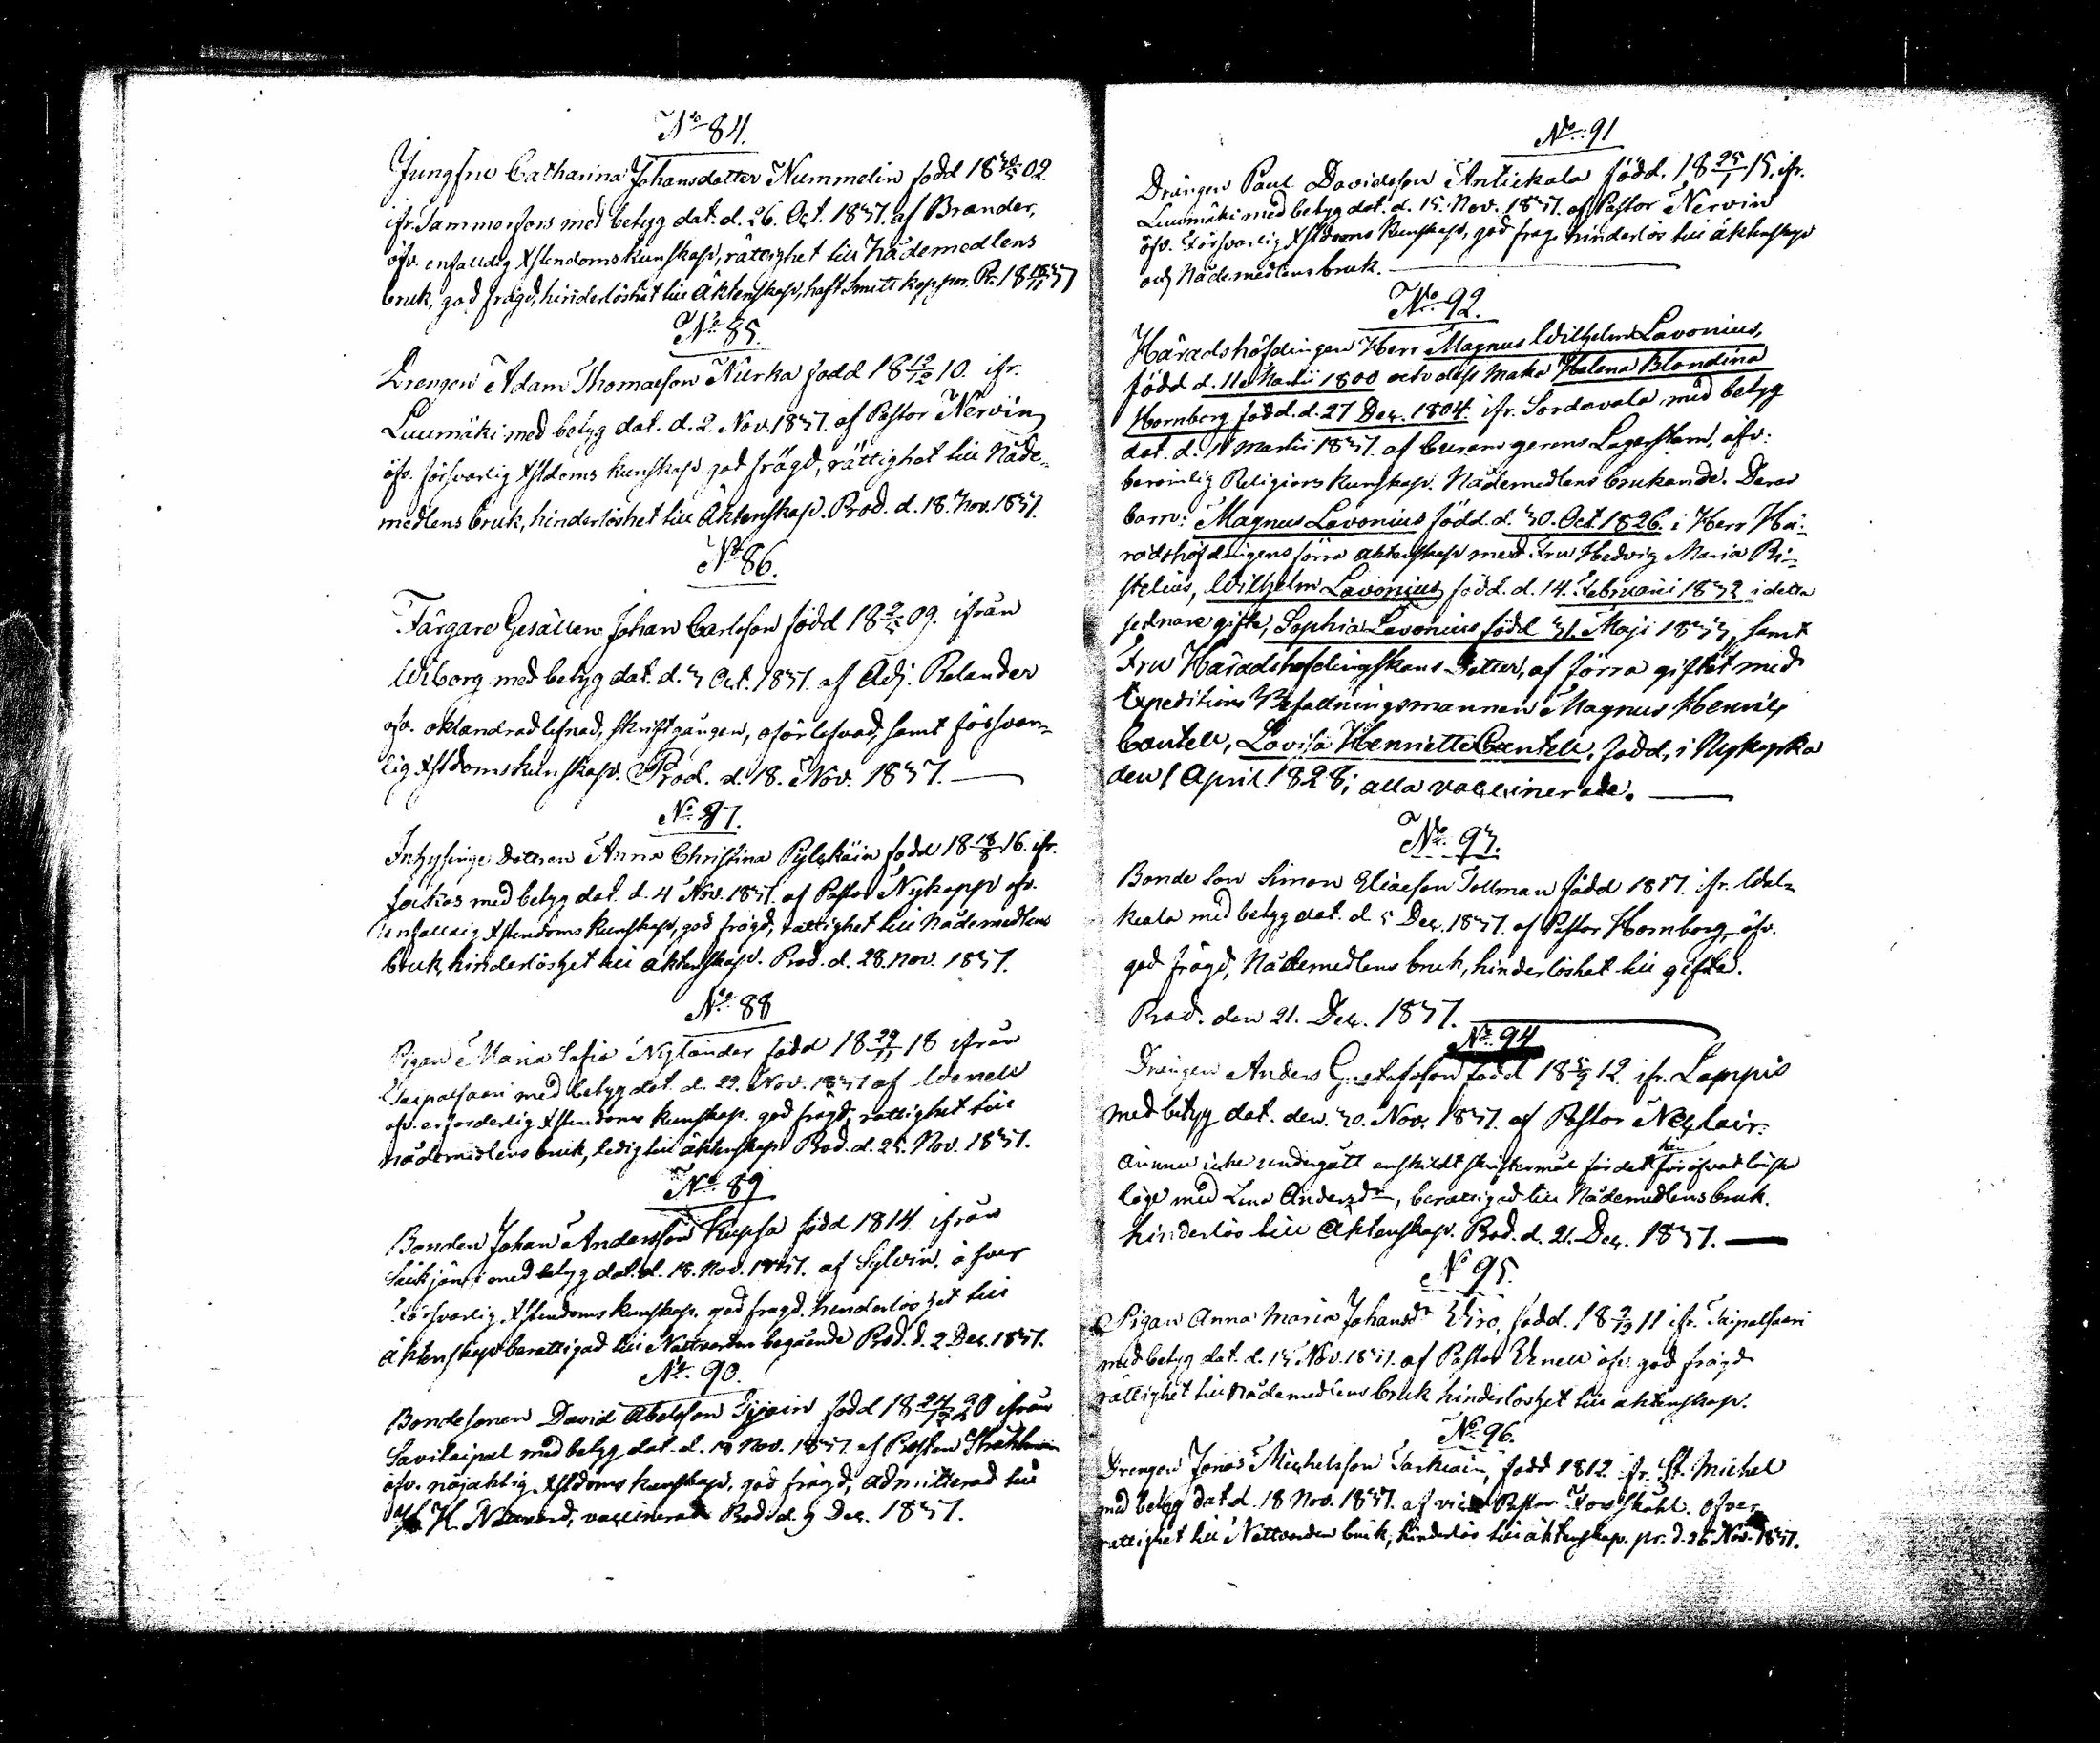 No 84.
Jungfru Catharina Johansdotter Nummelin född 18 30/5 02.
ifr. Tammerfors med betyg dat. d. 26. Oct. 1837. af Brander,
öfv. enfalldig Xstendomskunskap, rättighet till Nådemedlens
bruk, god frägd, hinderlöshet till Äktenskap, haft Smittkoppor. Pr. 18 18/11 37
No 85.
Drengen Adam Thomasson Kurka född 18 12/12 10. ifr.
Luumäki med betyg dat. d. 2. Nov. 1837. af Pastor Nervin
öfv. försvarlig Xstdoms kunskap god frägd, rättighet till Nåde-
medlens bruk, hinderlöshet till Äktenskap. Prod. d. 18. Nov. 1837.
No 86.
Färgare Gesällen Johan Carlsson född 18 2/5 09. ifrån
Wiborg med betyg dat. d. 3 Oct. 1837. af Adj. Relander
öfv. oklandrad lefnad, skriftgången, oförlofvad, samt försvar-
lig Xstdomskunskap. Prod. d. 18. Nov. 1837.
No 87.
Inhysinge Dottren Anna Christina Pylkkäin född 18 18/8 16. ifr.
Jockas med betyg dat. d. 4 Nov. 1837. af Pastor Nykopp öfv.
enfalldig Xstendoms kunskap, god frägd, rättighet till Nådemedlens
bruk, hinderlöshet till äktenskap. Prod. d. 28. Nov. 1837.
No 88
Pigan Maria Sofia Nylander född 18 29/11 18 ifrån
Taipalsaari med betyg dat. d. 22. Nov. 1837 af Wenell
öfv. erforderlig Xstendoms kunskap. god frägd, rättighet till
nådemedlens bruk, ledig till äktenskap Prod. d. 25. Nov. 1837.
No 89
Bonden Johan Andersson Kupsa född 1814. ifrån
Säckjärvi med betyg dat. d. 18. Nov. 1837. af Sylvin. öfver
försvarlig Xstendoms kunskap. god frägd. hinderlöshet till
äktenskap berättigad till Nattvarden begående Prod. d. 2 Dec. 1837.
No 90.
Bondesonen David Abelsson Tijain född 18 24/12 20 ifrån
Savitaipal med betyg dat. d. 18 Nov. 1837. af Prosten Strahlman
öfv. nöjaktig Xstdoms kunskap. god frägd, admitterad till
H. Nattvard, vaccinerad Prod d. 9 Dec. 1837.
No 91
Drängen Paul Davidsson Antickala född. 18 25/1 15. ifr.
Luumäki med betyg dat. d. 15. Nov. 1837. af Pastor Nervin
öfv. försvarlig Xstdoms kunskap, god fregd hinderlös till äktenskap
och Nådemedlens bruk.
No 92.
Häradshöfdingen Herr Magnus Wilhelm Lavonius,
född d. 11e Martii 1800 och dess maka Helena Blondina
Hornborg född. d. 27 Dec. 1804. ifr. Sordavala med betyg
dat. d. 11 Martii 1837. af curam gerens Lagerstam, öfv:
berömlig Religions kunskap. Nådemedlens brukande. Deras
barn: Magnus Lavonius född. d. 30. Oct. 1826. i Herr Hä-
radshöfdingens förra äktenskap med Fru Hedvig Maria Ri-
stelius, Wilhelm Lavonius född. d. 14. Februarii 1832 i detta
sednare gifte, Sophia Lavonius född 31. Maji 1833, samt
Fru Häradshöfdingskans Dotter, af förra giftet med
Expeditions Befallningsmannen Magnus Henric
Cantell, Lovisa Henriette Cantell, född, i Nykyrka
den 1 April 1828; alla vaccinerade.
No 93.
Bonde Son Simon Eliasson Tollman född 1817. ifr. Wal-
keala med betyg dat. d. 5 Dec. 1837. af Pastor Hornborg öfv.
god frägd, Nådemedlens bruk, hinderlöshet till gifte.
Prod. den 21. Dec. 1837.
No 94
Drängen Anders Gustafsson född 18 5/9 12. ifr. Lappvis
med betyg dat. den. 30. Nov. 1837. af Pastor Neclair.
ännu icke undergått enskildt skriftermål för det föröfvat lönska
läge med Lena Andersdr, berättigad till Nådemedlens bruk.
hinderlös till Äktenskap. Prod. d. 21. Dec. 1837.
No 95.
Pigan Anna Maria Johansdr Wiro, född. 18 2/12 11 ifr. Taipalsaari
med betyg dat. d. 15 Nov. 1837. af Pastor Wenell öfv. god frägd
rättighet till Nådemedlens bruk hinderlöshet till äktenskap.
No 96.
Drengen Jonas Michelsson Tarkiain, född 1812 ifr. St. Michel
med betyg dat d. 18 Nov. 1837. af vice Pastor Forsskåhl. öfver
rättighet till Nattvarden bruk, hinderlös till äktenskap. pr. d. 26 Nov. 1837.